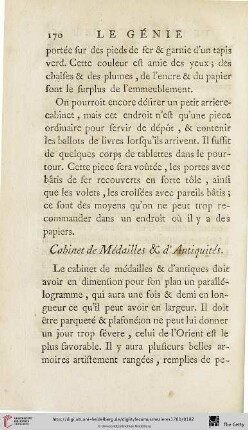 170 LE GÉNIE
portée sur des pieds de fer & garnie d'un tapis
verd. Cette couleur est amie des yeux ; des
chaises & des plumes, de l'encre & du papier
sont le surplus de l'emmeublement.
On pourroit encore désirer un petit arriere-
cabinet, mais cet endroit n'est qu'une piece
ordinaire pour servir de dépôt, & contenir
les ballots de livres lorsqu'ils arrivent. Il suffit
de quelques corps de tablettes dans le pour-
tour. Cette piece sera voûtée, les portes avec
bâtis de fer recouverts en forte tôle, ainsi
que les volets, les croisées avec pareils bâtis ;
ce sont des moyens qu'on ne peut trop re-
commander dans un endroit où il y a des
papiers.
Cabinet de Médailles & d'Antiquités.
Le cabinet de médailles & d'antiques doit
avoir en dimension pour son plan un parallé-
logramme, qui aura une fois & demi en lon-
gueur ce qu'il peut avoir en largeur. Il doit
être parqueté & plafonéon ne peut lui donner
un jour trop sévere, celui de l'Orient est le
plus favorable. Il y aura plusieurs belles ar-
moires artistement rangées, remplies de pe-
The Getty